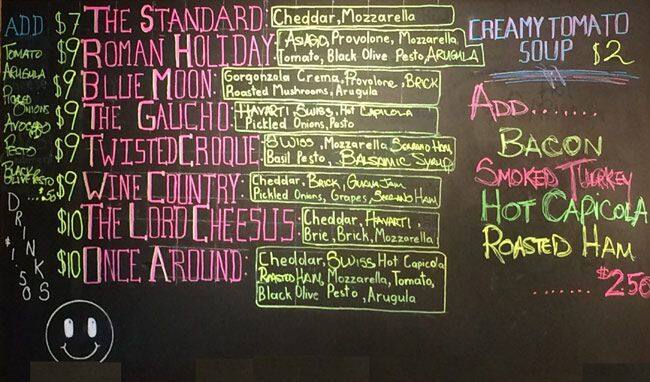 ADD
TOMATO
ARUGULA
PICKLED
ONIONS
AVOCADO
PESTO
BLACK
OLIVE PESTO
....50
DRINKS
$1.50
$7 THE STANDARD: Cheddar, Mozzarella
$9 ROMAN HOLIDAY: ASIAGO, Provolone, Mozzarella,
Tomato, Black Olive Pesto, ARUGULA
$9 BLUE MOON: Gorgonzola Crema, Provolone, BRICK
Roasted Mushrooms, Arugula
$9 THE GAUCHO: HAVARTI, SWISS, HOT CAPICOLA
Pickled Onions, Pesto
$9 TWISTED CROQUE: SWISS, Mozzarella, SERRANO HAM,
Basil Pesto, BALSAMIC SYRUP
$9 WINE COUNTRY: Cheddar, BRICK, GUAVA JAM,
Pickled Onions, Grapes, SERRANO HAM
$10 THE LORD CHEESUS: Cheddar, HAVARTI,
Brie, Brick, Mozzarella
$10 ONCE AROUND: Cheddar, SWISS, Hot Capicola
ROASTED HAM, Mozzarella, Tomato,
Black Olive Pesto, Arugula
CREAMY TOMATO
SOUP $2
ADD.......
BACON
SMOKED TURKEY
HOT CAPICOLA
ROASTED HAM
....... $2.50